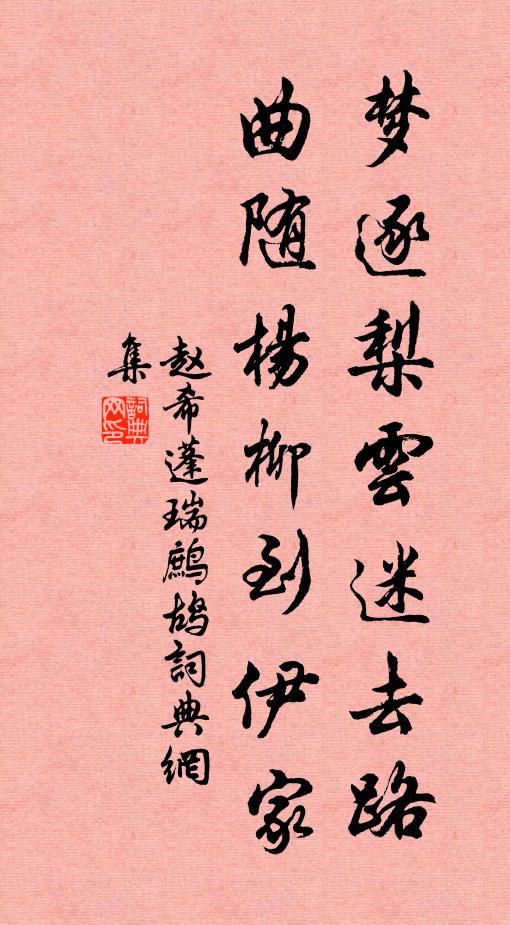 梦逐梨雲迷去路
曲随楊柳到伊家
赵希蓬瑞鹧鸪詞典網
集
詞典网印